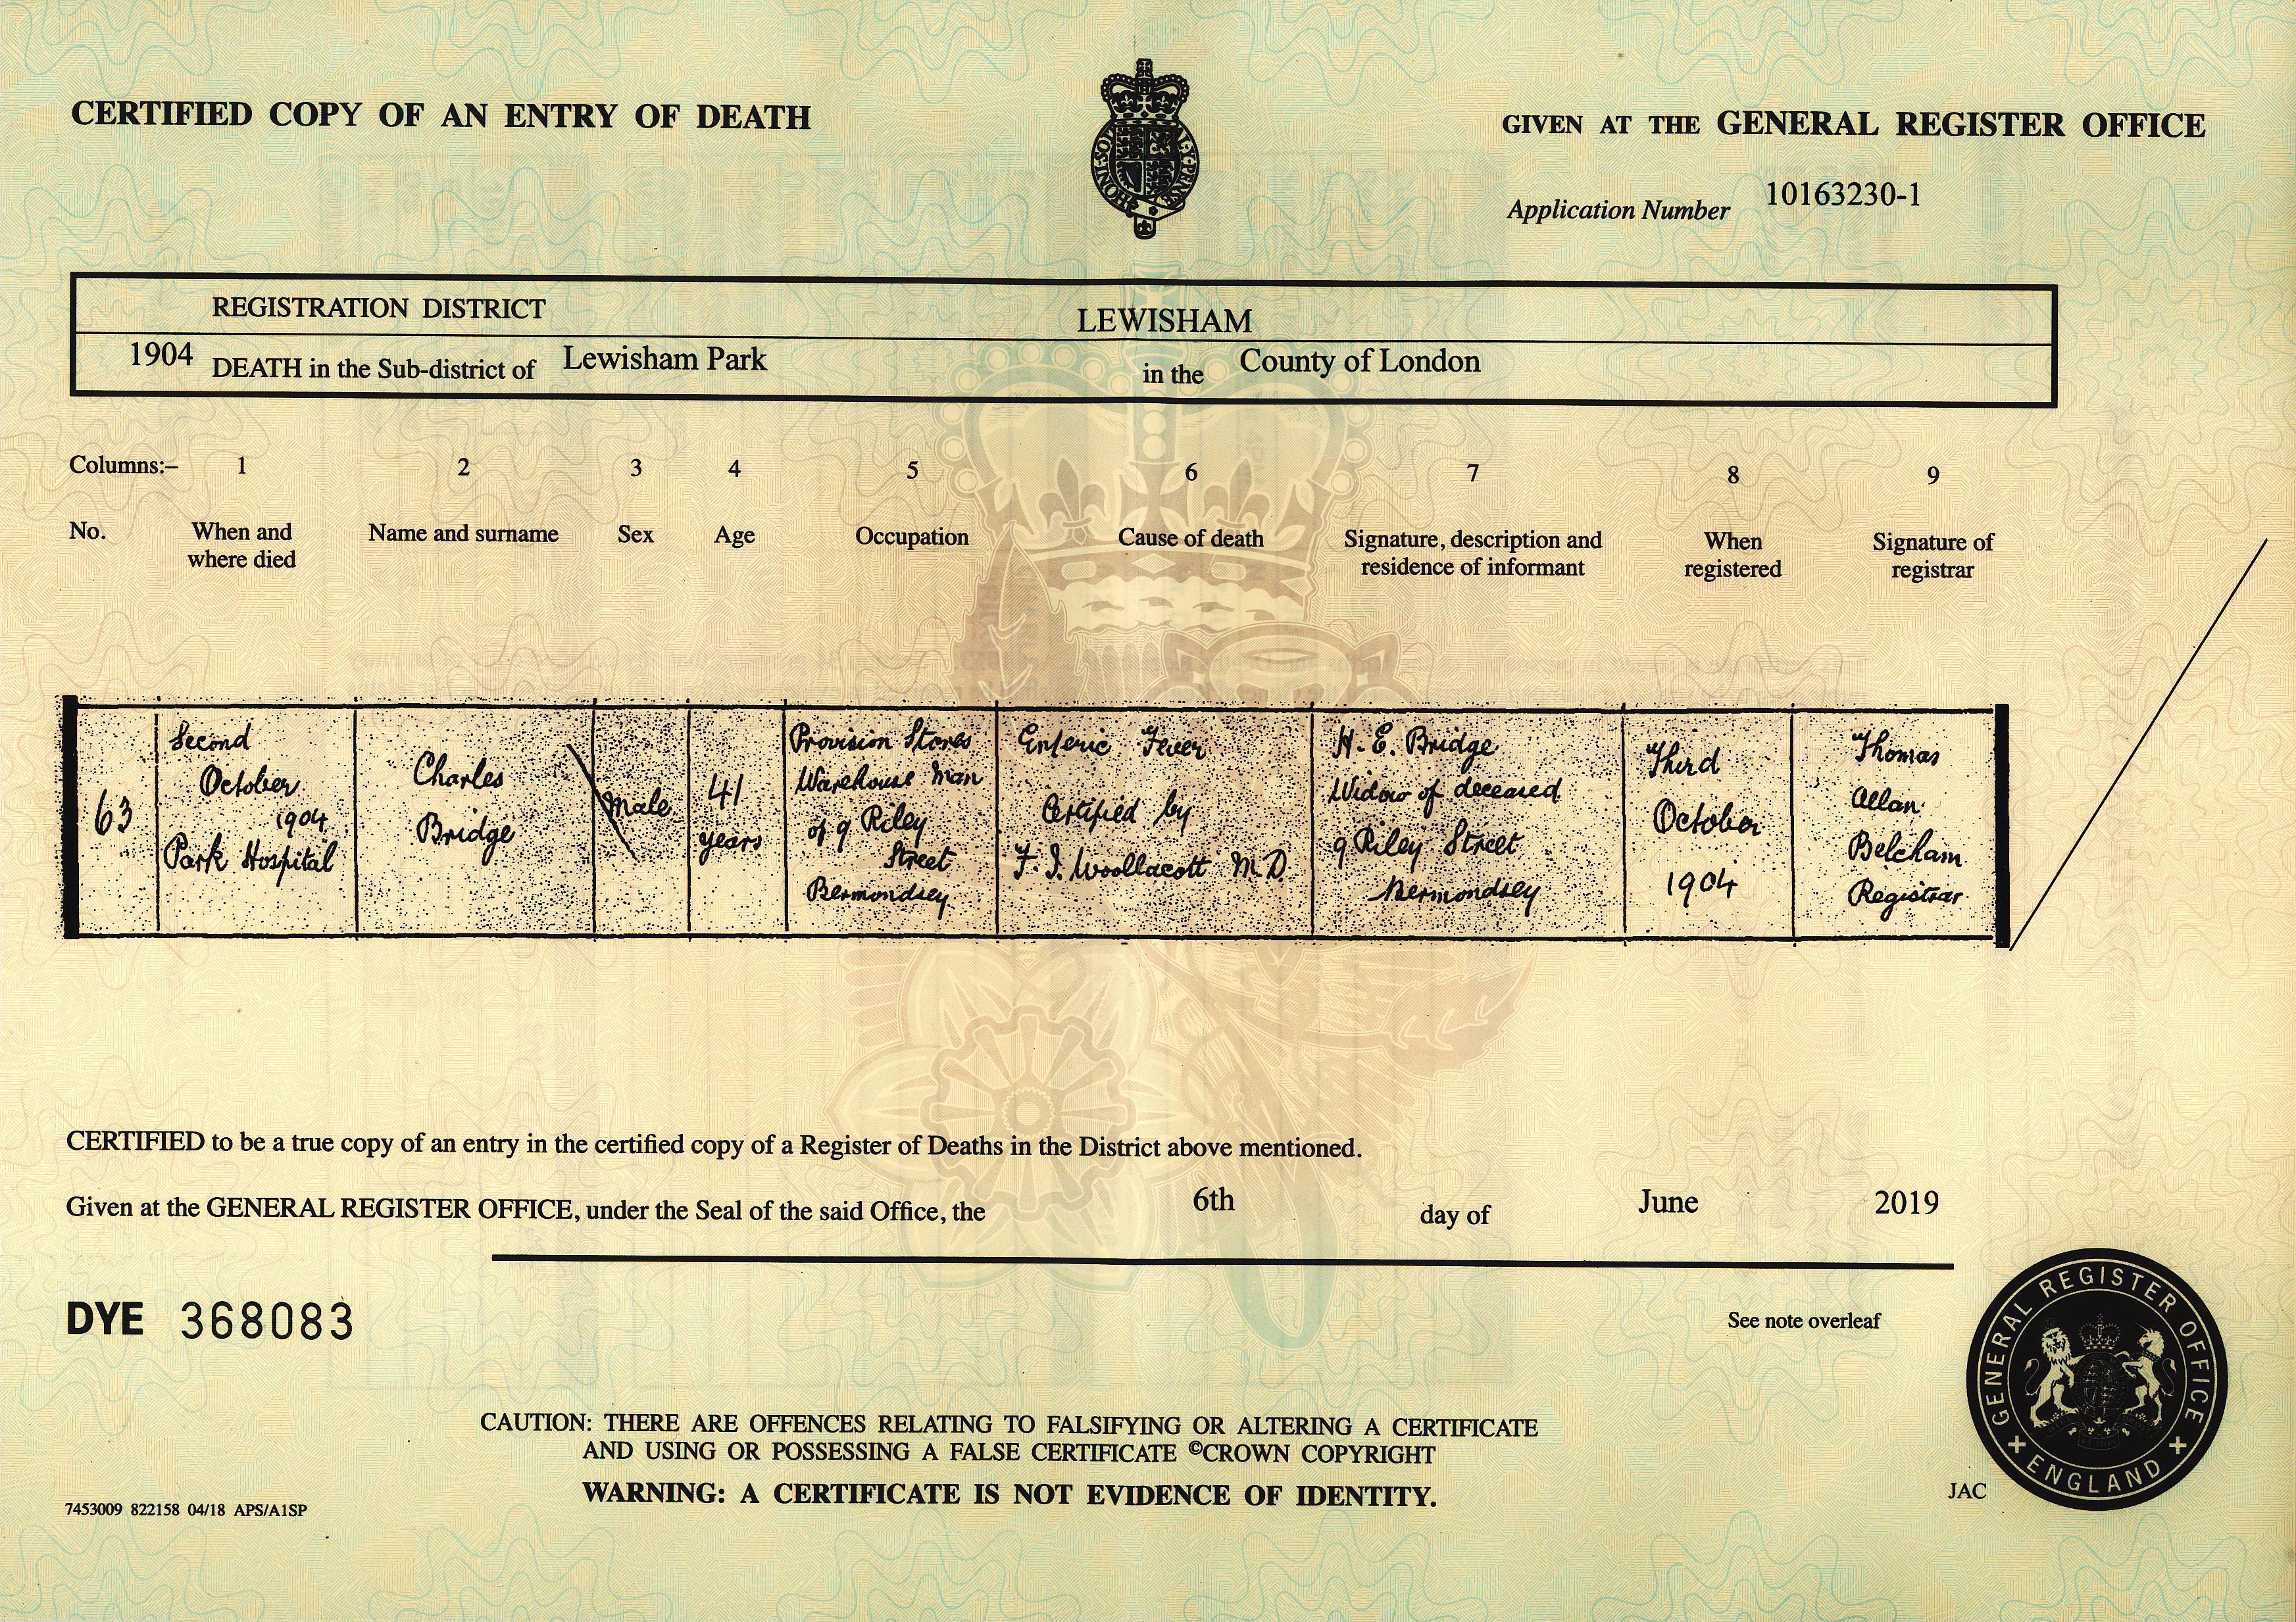 CERTIFIED COPY OF AN ENTRY OF DEATH
GIVEN AT THE GENERAL REGISTER OFFICE
Application Number 10163230-1
REGISTRATION DISTRICT LEWISHAM
1904 DEATH in the Sub-district of Lewisham Park in the County of London
Columns:– 1 2 3 4 5 6 7 8 9
No.
When and
where died
Name and surname
Sex
Age
Occupation
Cause of death
Signature, description and
residence of informant
When
registered
Signature of
registrar
63
Second
October
1904
Park Hospital
Charles
Bridge
Male
41
years
Provision Stores
Warehouse Man
of 9 Riley
Street
Bermondsey
Enteric Fever
Certified by
F. J. Woollacott M.D.
H. E. Bridge
Widow of deceased
9 Riley Street
Bermondsey
Third
October
1904
Thomas
Allan
Belcham
Registrar
CERTIFIED to be a true copy of an entry in the certified copy of a Register of Deaths in the District above mentioned.
Given at the GENERAL REGISTER OFFICE, under the Seal of the said Office, the 6th day of June 2019
DYE 368083
See note overleaf
GENERAL REGISTER OFFICE
ENGLAND
CAUTION: THERE ARE OFFENCES RELATING TO FALSIFYING OR ALTERING A CERTIFICATE
AND USING OR POSSESSING A FALSE CERTIFICATE ©CROWN COPYRIGHT
WARNING: A CERTIFICATE IS NOT EVIDENCE OF IDENTITY.
7453009 822158 04/18 APS/A1SP
JAC